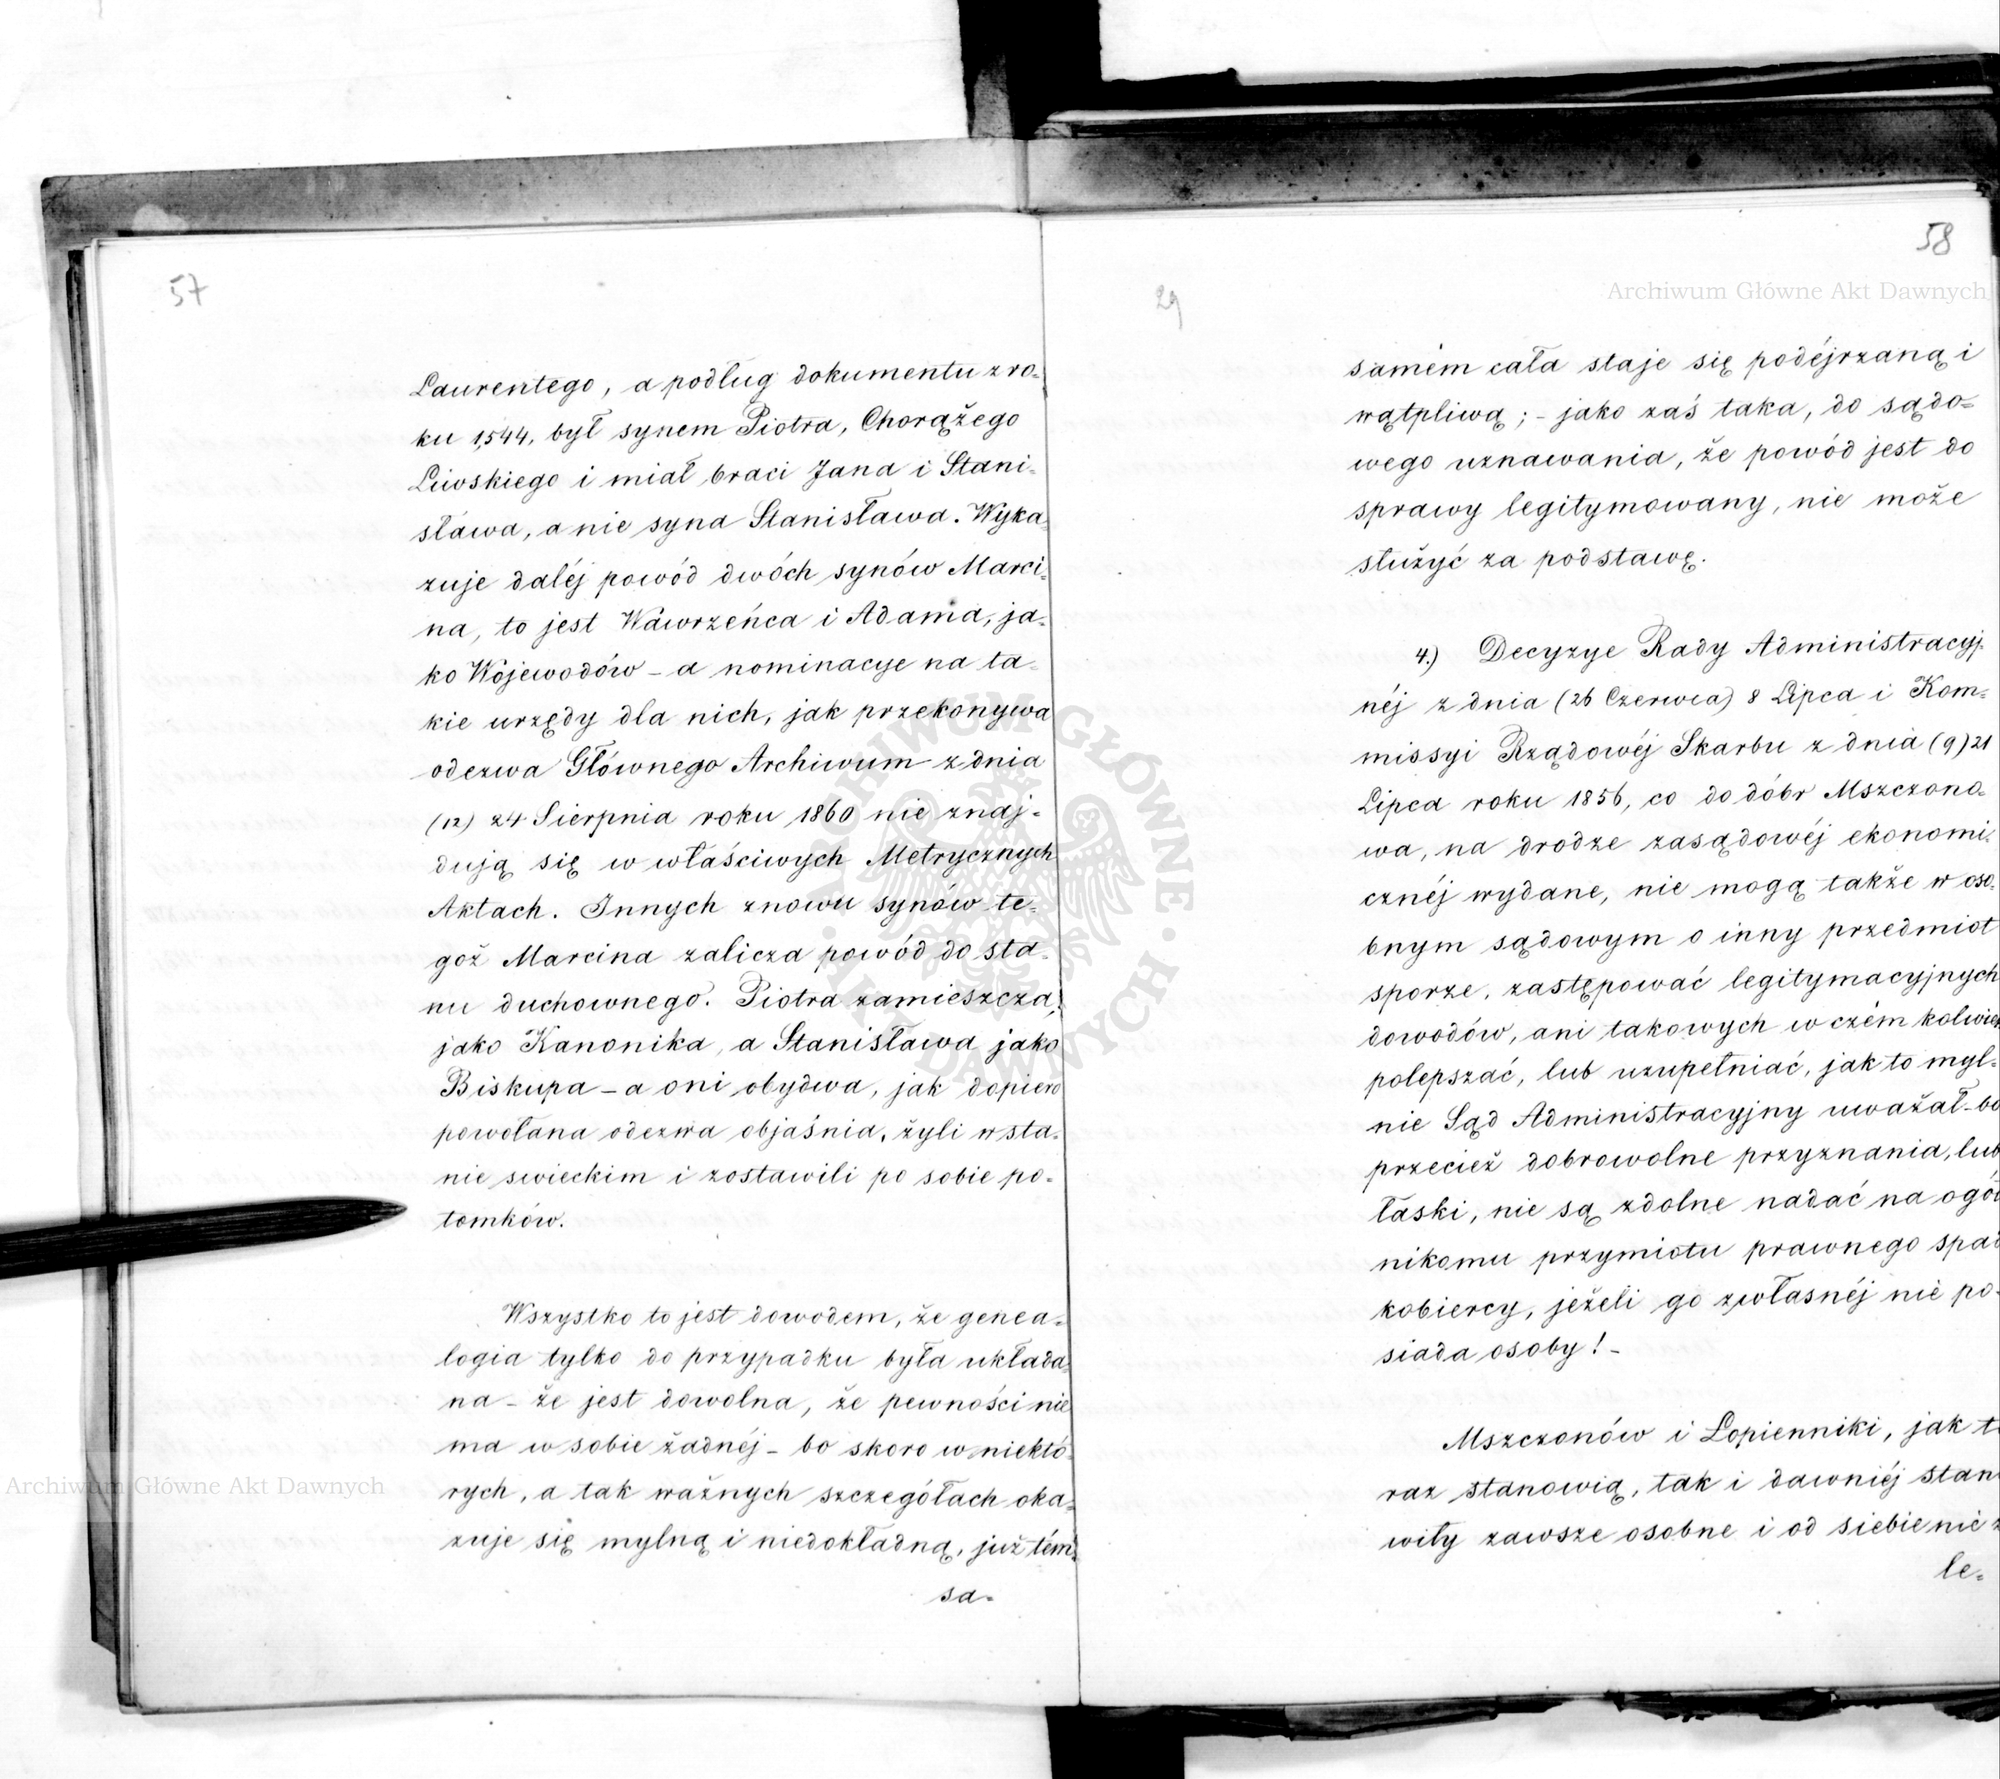 57
Laurentego, a podług dokumentu z ro-
ku 1544, był synem Piotra, Chorążego
Liwskiego i miał braci Jana i Stani-
sława, a nie syna Stanisława. Wyka-
zuje daléj powód dwóch synów Marci-
na, to jest Wawrzeńca i Adama, ja-
ko Wojewodów – a nominacye na ta-
kie urzędy dla nich, jak przekonywa
odezwa Głównego Archiwum z dnia
(12) 24 Sierpnia roku 1860 nie znaj-
dują się w właściwych Metrycznych
Aktach. Innych znowu synów te-
goż Marcina zalicza powód do sta-
nu duchownego. Piotra zamieszcza,
jako Kanonika, a Stanisława jako
Biskupa – a oni obydwa, jak dopiero
powołana odezwa objaśnia, żyli w sta-
nie swieckim i zostawili po sobie po-
tomków.
Wszystko to jest dowodem, że genea-
logia tylko do przypadku była układa-
na – że jest dowolna, że pewności nie
ma w sobie żadnéj – bo skoro w niektó-
rych, a tak ważnych szczegółach oka-
zuje się mylną i niedokładną, już tém
sa-
58
29
samém cała staje się podéjrzaną i
wątpliwą; – jako zaś taka, do sądo-
wego uznawania, że powód jest do
sprawy legitymowany, nie może
służyć za podstawę.
4.) Decyzye Rady Administracyj-
néj z dnia (26 Czerwca) 8 Lipca i Kom-
missyi Rządowéj Skarbu z dnia (9) 21
Lipca roku 1856, co do dóbr Mszczono-
wa, na drodze zasądowéj ekonomi-
cznéj wydane, nie mogą także w oso-
bnym sądowym o inny przedmiot
sporze, zastępować legitymacyjnych
dowodów, ani takowych w czém kolwiek
polepszać, lub uzupełniać, jak to myl-
nie Sąd Administracyjny uważał – bo
przecież dobrowolne przyznania, lub
łaski, nie są zdolne nadać na ogół
nikomu przymiotu prawnego spad
kobiercy, jeżeli go z własnéj nie po-
siada osoby! –
Mszczonów i Łopienniki, jak te
raz stanowią, tak i dawniéj stano
wiły zawsze osobne i od siebie nie z
le-
Archiwum Główne Akt Dawnych
Archiwum Główne Akt Dawnych
ARCHIWUM GŁÓWNE AKT DAWNYCH